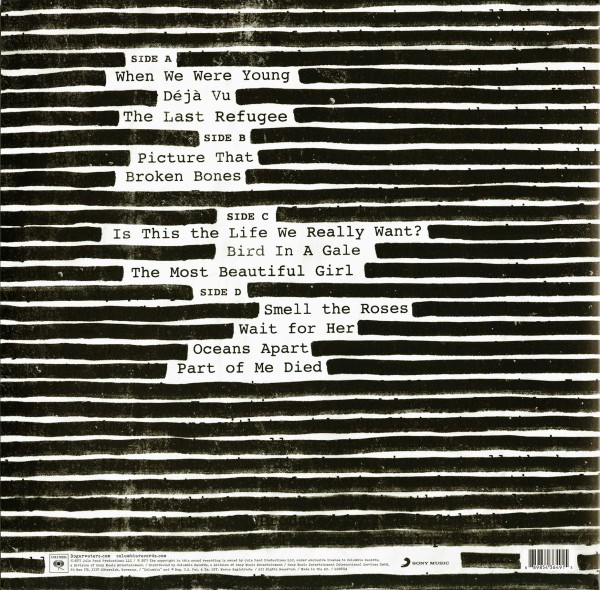 SIDE A
When We Were Young
Déjà Vu
The Last Refugee
SIDE B
Picture That
Broken Bones
SIDE C
Is This the Life We Really Want?
Bird In A Gale
The Most Beautiful Girl
SIDE D
Smell the Roses
Wait for Her
Oceans Apart
Part of Me Died
Rogerwaters.com columbiarecords.com
SONY MUSIC